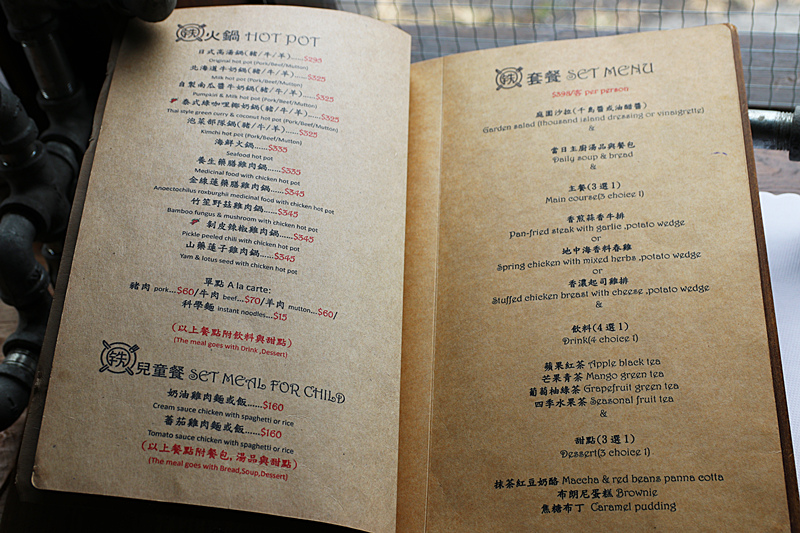 火鍋 HOT POT
日式高湯鍋(豬/牛/羊).....$295
Original hot pot (Pork/Beef/Mutton)
北海道牛奶鍋(豬/牛/羊).....$325
Milk hot pot (Pork/Beef/Mutton)
自製南瓜醬牛奶鍋(豬/牛/羊)......$325
Pumpkin & Milk hot pot (Pork/Beef/Mutton)
泰式綠咖哩椰奶鍋(豬/牛/羊)......$325
Thai style green curry & coconut hot pot (Pork/Beef/Mutton)
泡菜部隊鍋(豬/牛/羊)......$325
Kimchi hot pot (Pork/Beef/Mutton)
海鮮火鍋......$335
Seafood hot pot
養生藥膳雞肉鍋......$335
Medicinal food with chicken hot pot
金線蓮藥膳雞肉鍋......$345
Anoectochilus roxburghii medicinal food with chicken hot pot
竹笙野菇雞肉鍋......$345
Bamboo fungus & mushroom with chicken hot pot
剝皮辣椒雞肉鍋......$345
Pickle peeled chili with chicken hot pot
山藥蓮子雞肉鍋......$345
Yam & lotus seed with chicken hot pot
單點 A la carte:
豬肉 pork...$60/牛肉 beef...$70/羊肉 mutton...$60/
科學麵 instant noodles...$15
(以上餐點附飲料與甜點)
(The meal goes with Drink ,Dessert)
兒童餐 SET MEAL FOR CHILD
奶油雞肉麵或飯......$160
Cream sauce chicken with spaghetti or rice
蕃茄雞肉麵或飯......$160
Tomato sauce chicken with spaghetti or rice
(以上餐點附餐包,湯品與甜點)
(The meal goes with Bread,Soup,Dessert)
套餐 SET MENU
$398/客 per person
庭園沙拉(千島醬或油醋醬)
Garden salad (thousand island dressing or vinaigrette)
&
當日主廚湯品與餐包
Daily soup & bread
&
主餐(3選1)
Main course(3 choice 1)
香煎蒜香牛排
Pan-fried steak with garlic ,potato wedge
or
地中海香料春雞
Spring chicken with mixed herbs ,potato wedge
or
香濃起司雞排
Stuffed chicken breast with cheese ,potato wedge
&
飲料(4選1)
Drink(4 choice 1)
蘋果紅茶 Apple black tea
芒果青茶 Mango green tea
葡萄柚綠茶 Grapefruit green tea
四季水果茶 Seasonal fruit tea
&
甜點(3選1)
Dessert(3 choice 1)
抹茶紅豆奶酪 Maccha & red beans panna cotta
布朗尼蛋糕 Brownie
焦糖布丁 Caramel pudding